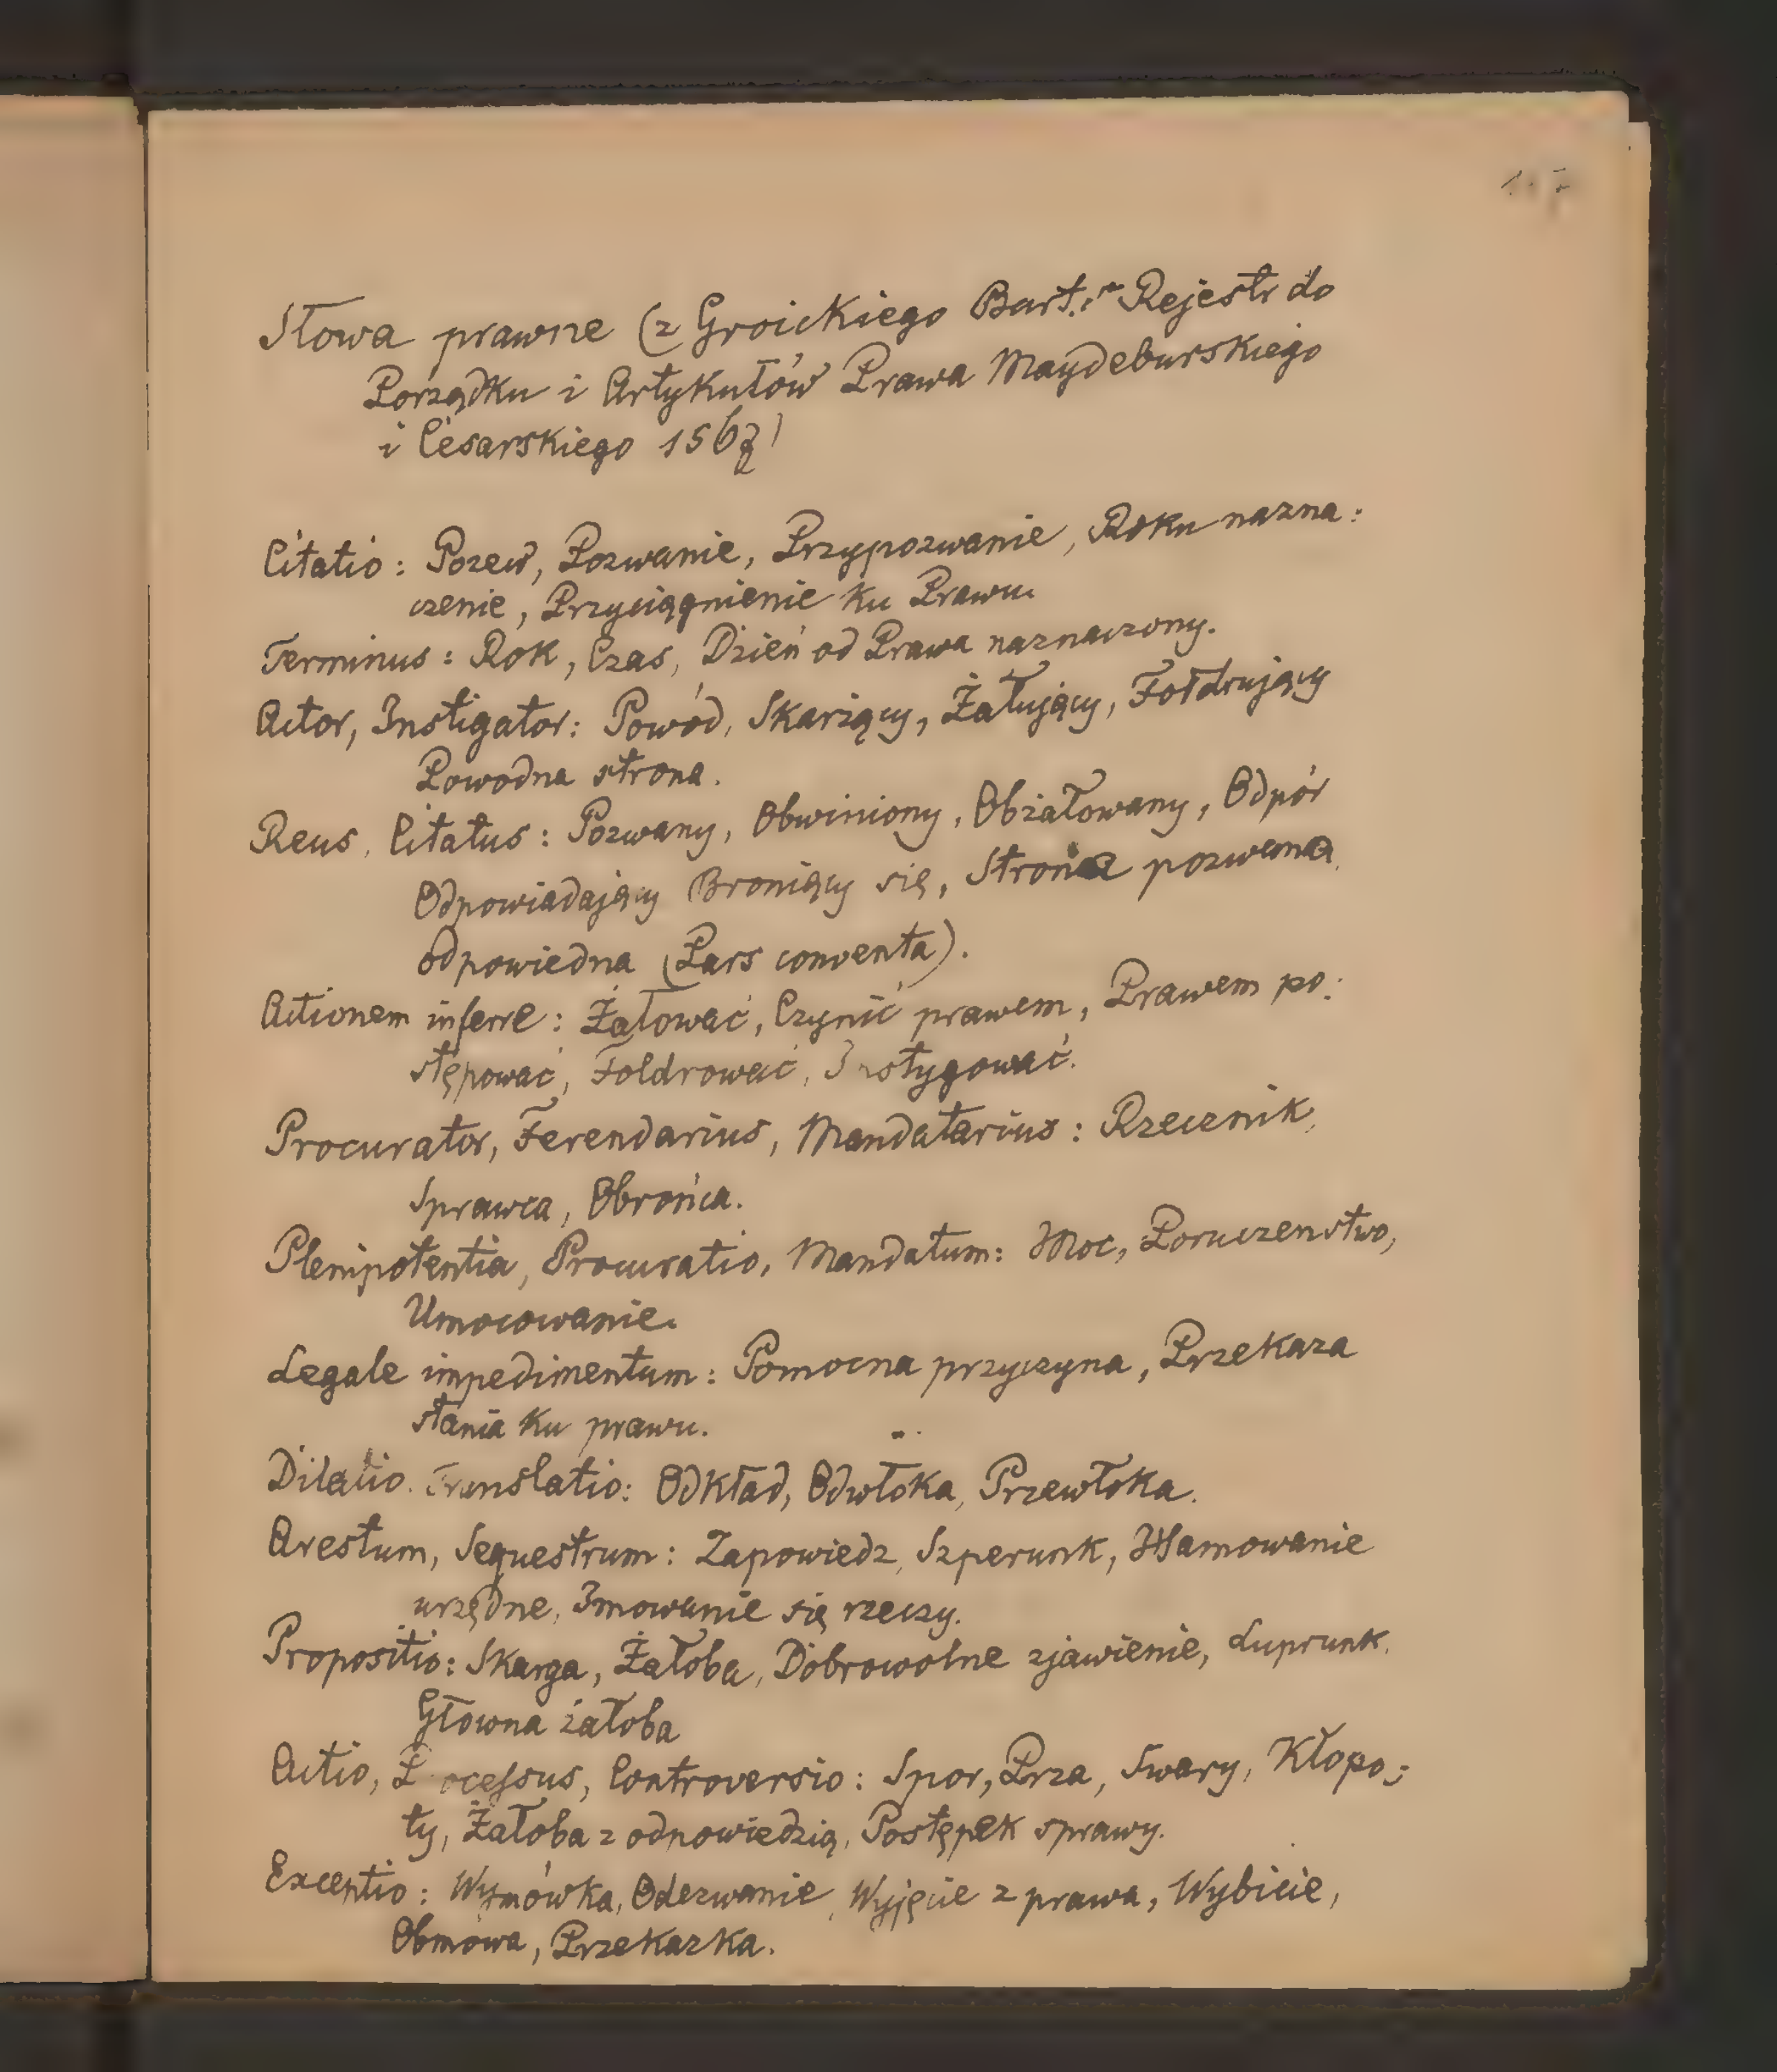 Słowa prawne (z Groickiego Bart. Rejestr do
Porządku i Artykułów Prawa Maydeburskiego
i Cesarskiego 1567)
Citatio: Pozew, Pozwanie, Przypozwanie, Roku nazna:
czenie, Przyciągnienie ku Prawu.
Terminus: Rok, Czas, Dzień od Prawa naznaczony.
Actor, Instigator: Powód, Skarżący, Żałujący, Fołdrujący
Powodna strona.
Reus, Citatus: Pozwany, Obwiniony, Obżałowany, Odpór
Odpowiadający Broniący się, Strona pozwana
odpowiedna (Pars conventa).
Actionem inferre: Żałować, Czynić prawem, Prawem po:
stępować, Foldrować, Instygować.
Procurator, Ferendarius, Mandatarius: Rzecznik,
Sprawca, Obrońca.
Plenipotentia, Procuratio, Mandatum: Moc, Poruczenstwo,
Umocowanie.
Legale impedimentum: Pomocna przyczyna, Przekaza
stania ku prawu.
Dilatio. Translatio: Odkład, Odwłoka, Przewłoka.
Arestum, Sequestrum: Zapowiedz, Szperunk, Hamowanie
urzędne, Imowanie się rzeczy.
Propositio: Skarga, Żałoba, Dobrowolne zjawienie, Luprunk.
Głowna żałoba
Actio, Processus, Controversio: Spor, Prza, Swary, Kłopo:
ty, Żałoba z odpowiedzią, Postępek sprawy.
Exceptio: Wymówka, Odezwanie, Wyjęcie z prawa, Wybicie,
Obmowa, Przekazka.